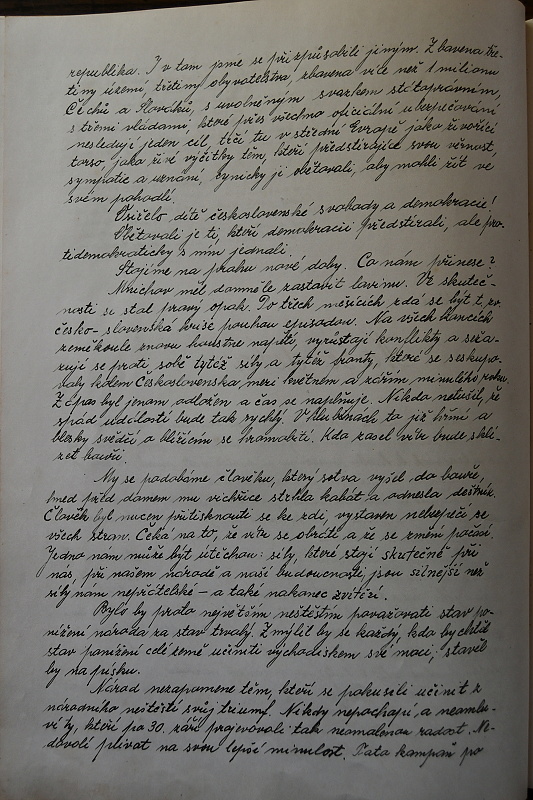 republika. I v tom jsme se přizpůsobili jiným. Zbavena tře-
tiny území, třetiny obyvatelstva, zbavena více než 1 milionu
Čechů a Slováků, s uvolněným svazkem státoprávním,
s třemi vládami, které přes všechno oficiální ubezpečování
nesledují jeden cíl, trčí tu v střední Evropě jako živořící
torso, jako živé výčitky těm, kteří předstírajíce svou věrnost,
sympatie a uznání, cynicky ji obětovali, aby mohli žít ve
svém pohodlí.
Osiřelo dítě československé svobody a demokracie!
Obětovali je ti, kteří demokracii předstírali, ale pro-
tidemokraticky s ním jednali.
Stojíme na prahu nové doby. Co nám přinese?
Mnichov měl domněle zastavit lavinu. Ve skuteč-
nosti se stal pravý opak. Po třech měsících zdá se být t. zv.
česko-slovenská krise pouhou episodou. Na všech koncích
zeměkoule znovu houstne napětí, vyrůstají konflikty a seřa-
zují se proti sobě tytéž síly a tytéž fronty, které se seskupo-
valy kolem Československa mezi květnem a zářím minulého roku.
Zápas byl jenom odložen a čas se naplňuje. Nikdo netušil, že
spád událostí bude tak rychlý. V hlubinách to již hřmí a
blesky svědčí o blížícím se hromobití. Kdo zasel vítr bude skli-
zet bouři.
My se podobáme člověku, který sotva vyšel do bouře,
hned před domem mu vichřice strhla kabát a odnesla deštník.
Člověk byl nucen přitisknouti se ke zdi, vystaven nebezpečí se
všech stran. Čeká na to, že vítr se obrátí a že se změní počasí.
Jedno nám může být útěchou: síly, které stojí skutečně při
nás, při našem národě a naší budoucnosti, jsou silnější než
síly nám nepřátelské – a také nakonec zvítězí.
Bylo by proto největším neštěstím považovati stav po-
nížení národa za stav trvalý. Zmýlil by se každý, kdo by chtěl
stav ponížení celé země učiniti východiskem své moci; stavěl
by na písku.
Národ nezapomene těm, kteří se pokusili učinit z
národního neštěstí svůj triumf. Nikdy nepochopí, a neomlu-
ví ty, kteří po 30. září projevovali tak neomalenou radost. Ne-
dovolí plivat na svou lepší minulost. Tato kampaň po